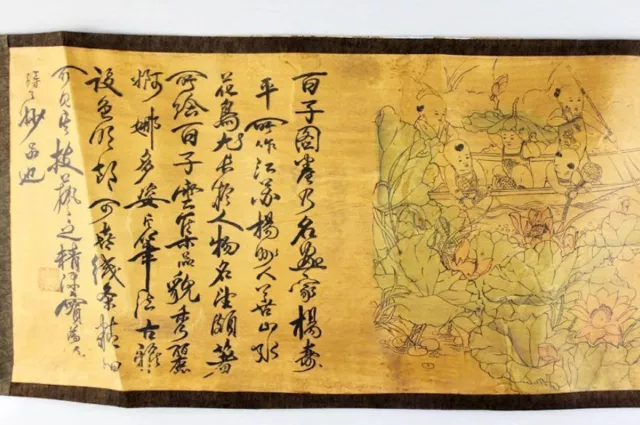 百子图卷乃名画家杨寿
平所作江苏扬州人善山水
花鸟尤长于人物名生颇著
所绘百子云集品貌秀丽
婀娜多姿笔法古雅
设色明朗可喜线条精细
可见其技艺之精深实为
妙品也